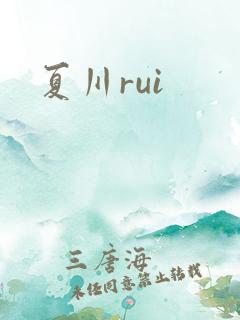 夏川rui
三唐海
未经同意禁止转载